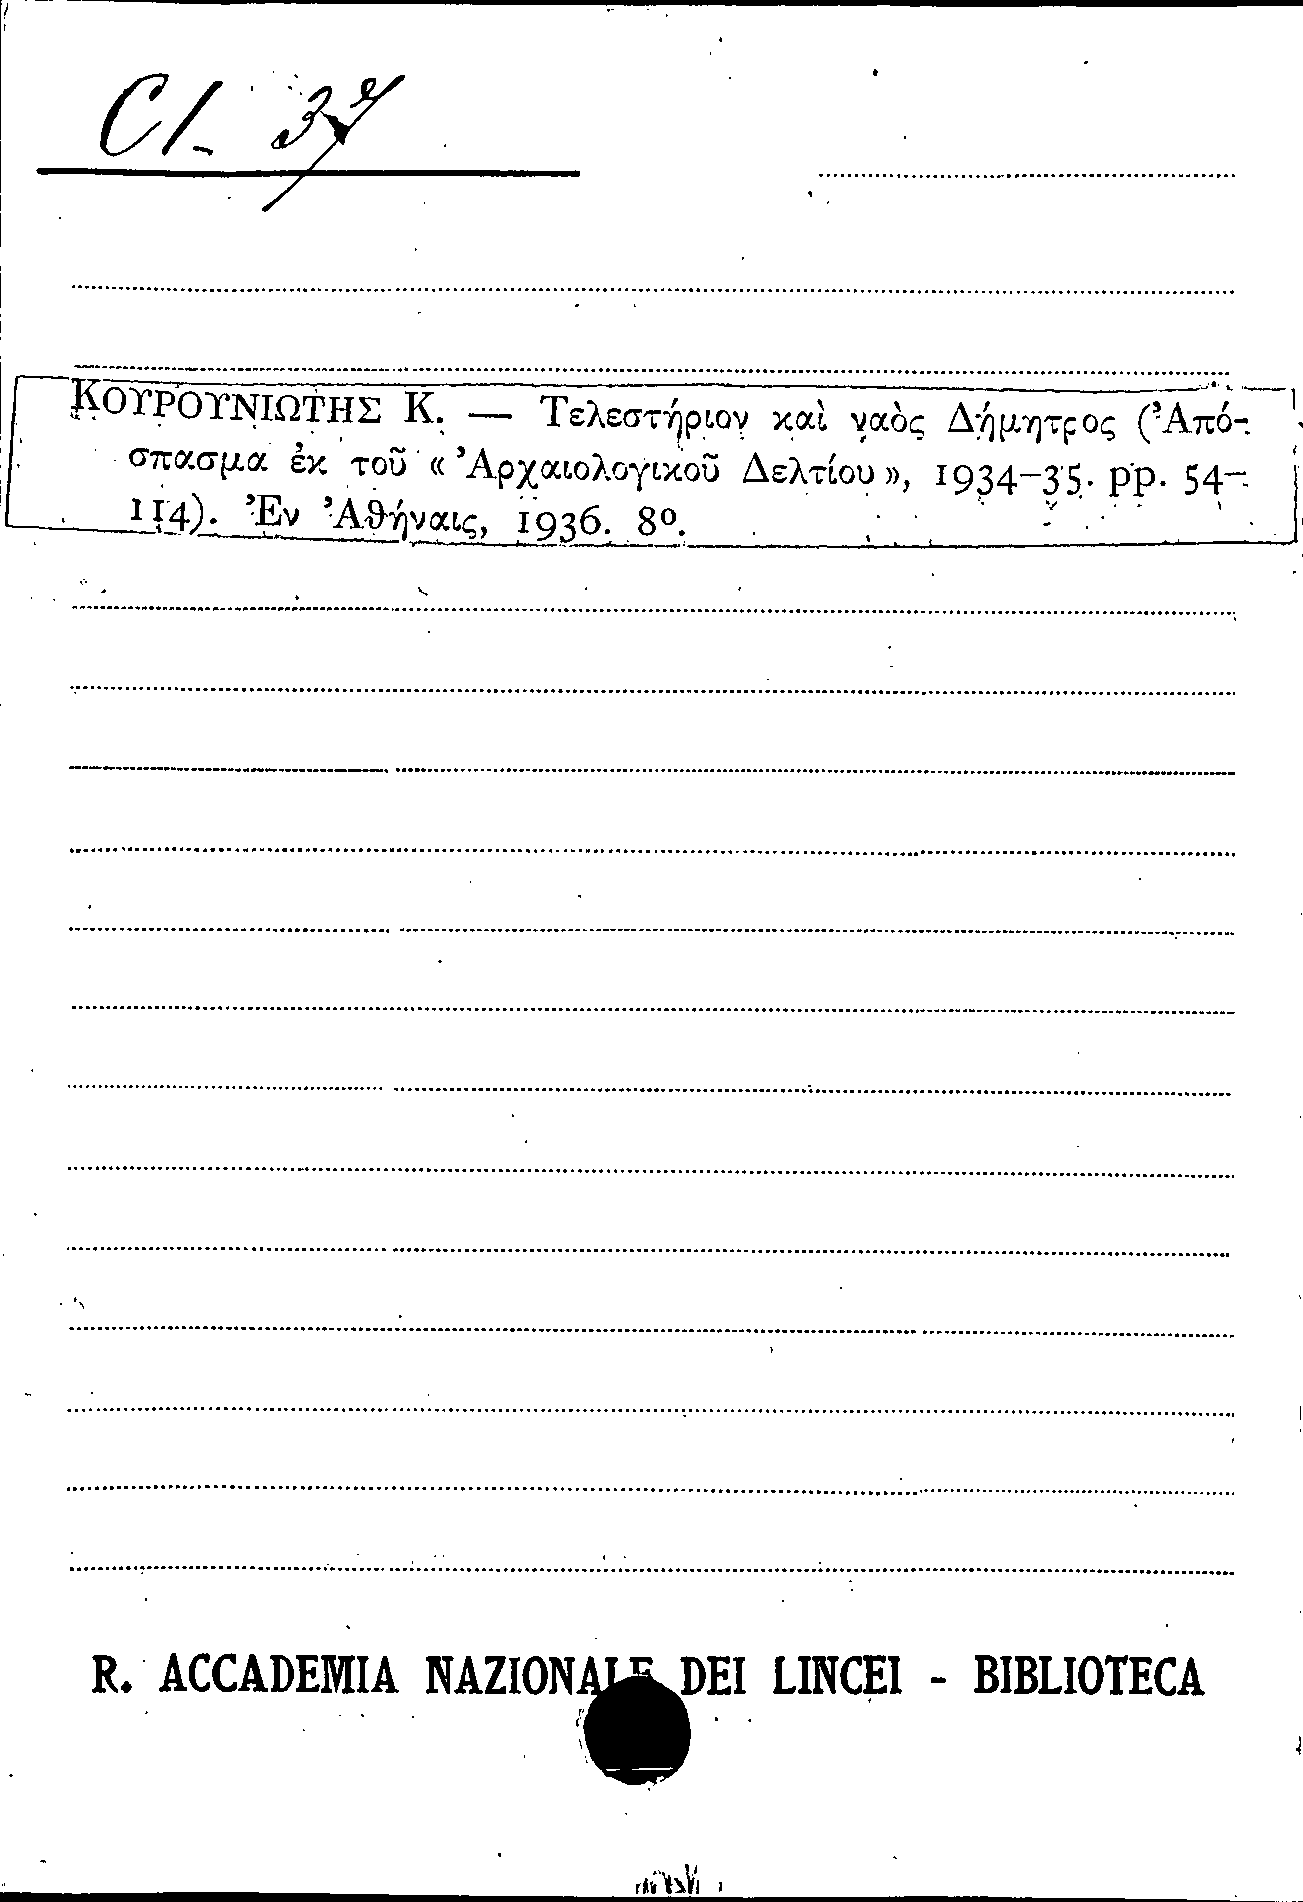 Cl. 37
ΚΟΥΡΟΥΝΙΩΤΗΣ Κ. — Τελεστήριον καὶ ναὸς Δήμητρος (Ἀπό-
σπασμα ἐκ τοῦ « Ἀρχαιολογικοῦ Δελτίου », 1934-35. pp. 54-
114). Ἐν Ἀθήναις, 1936. 8º.
R. ACCADEMIA NAZIONALE DEI LINCEI - BIBLIOTECA